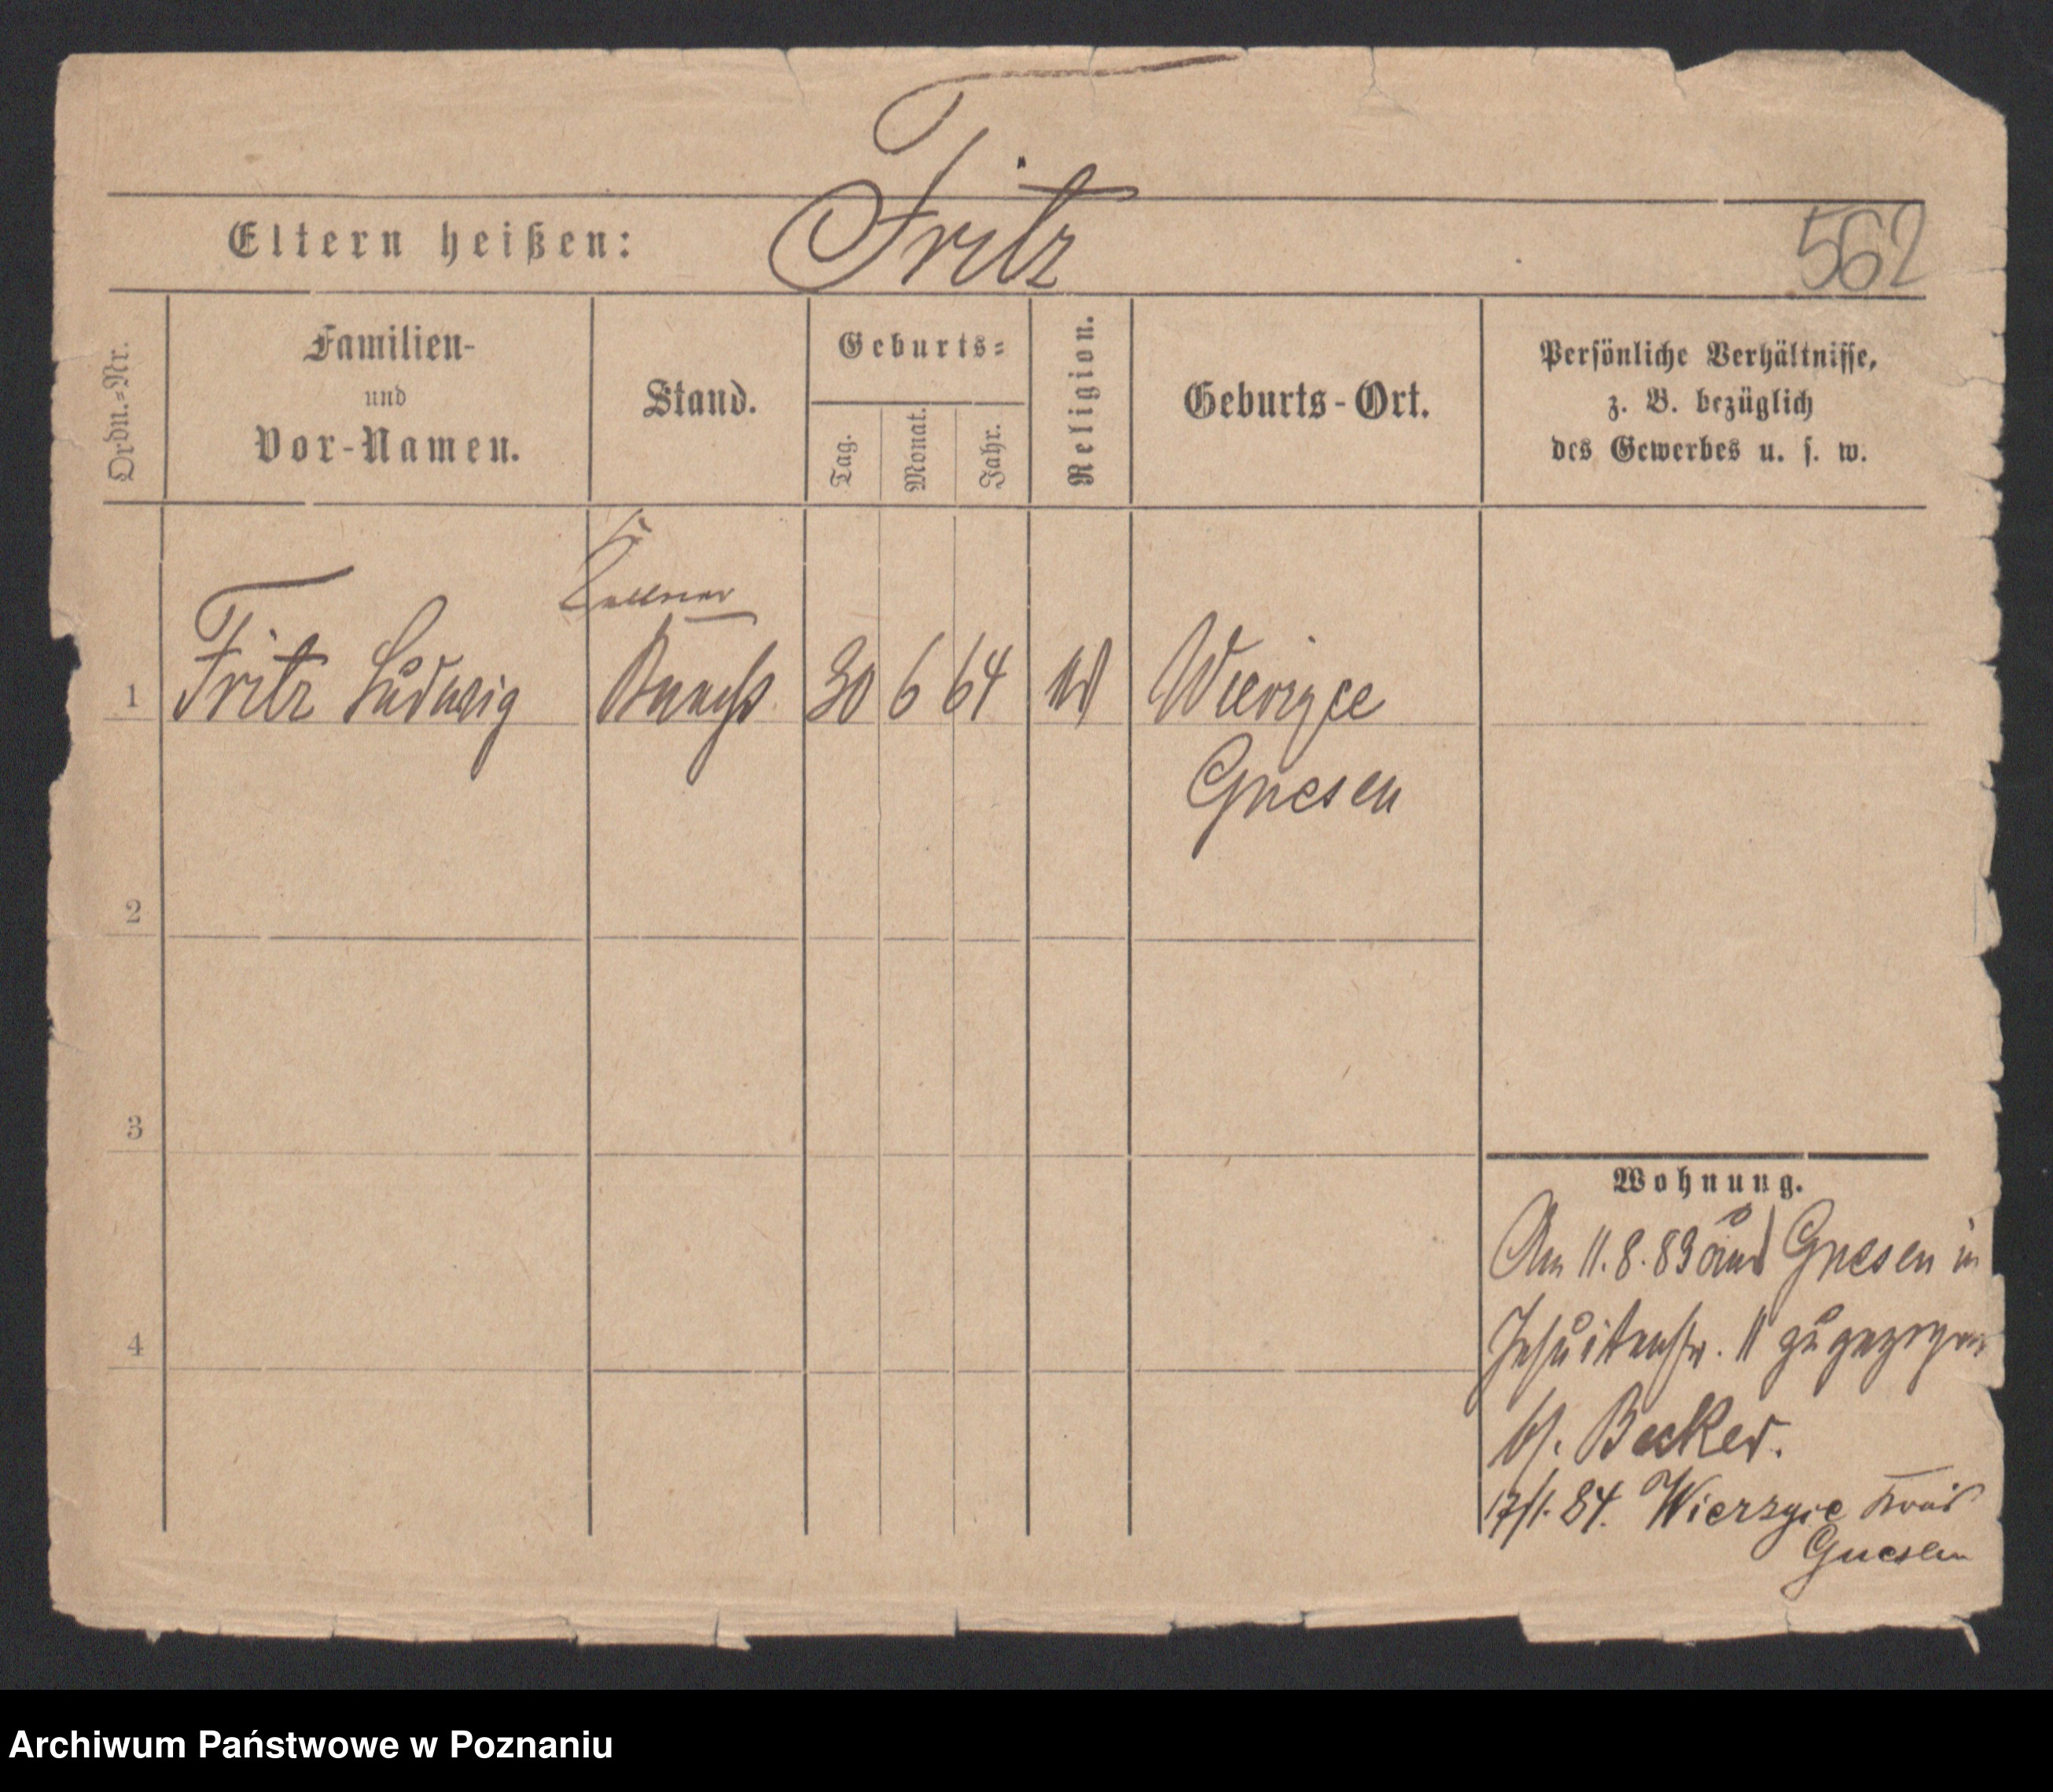 Fritz
Eltern heißen:
562
Ordn.-Nr.
Familien-
und
Vor-Namen.
Stand.
Geburts-
Tag.
Monat.
Jahr.
Religion.
Geburts-Ort.
Persönliche Verhältnisse,
z. B. bezüglich
des Gewerbes u. s. w.
Kellner
1 Fritz Ludwig 30 6 64
Gnesen
2
3
4
Wohnung.
Am 11.8.83 aus Gnesen in
Jesuitenstr. 11 zugezogen
b/. Becker.
17/1. 84. Wierzyce Kreis
Gnesen
Archiwum Państwowe w Poznaniu